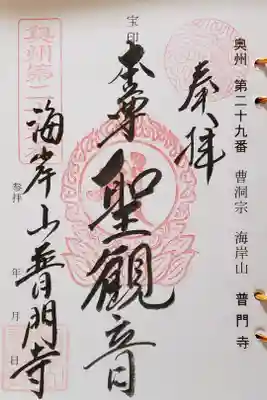 奥州 第二十九番 曹洞宗 海岸山 普門寺
奉拝
宝印
本尊 聖観音
海岸山普門寺
参拝 年 月 日